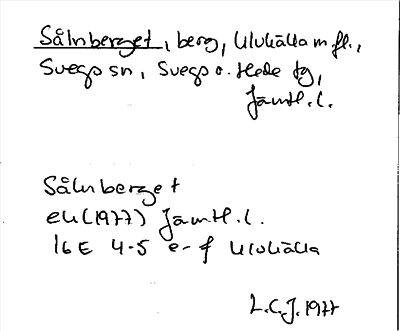 Sålnberget, berg, Ulvkälla m fl.,
Svegs sn, Svegs o. Hede tg,
Jämtl. l.
Sålnberget
ek (1977) Jämtl. l.
16 E 4-5 e-f Ulvkälla
L.C.J. 1977